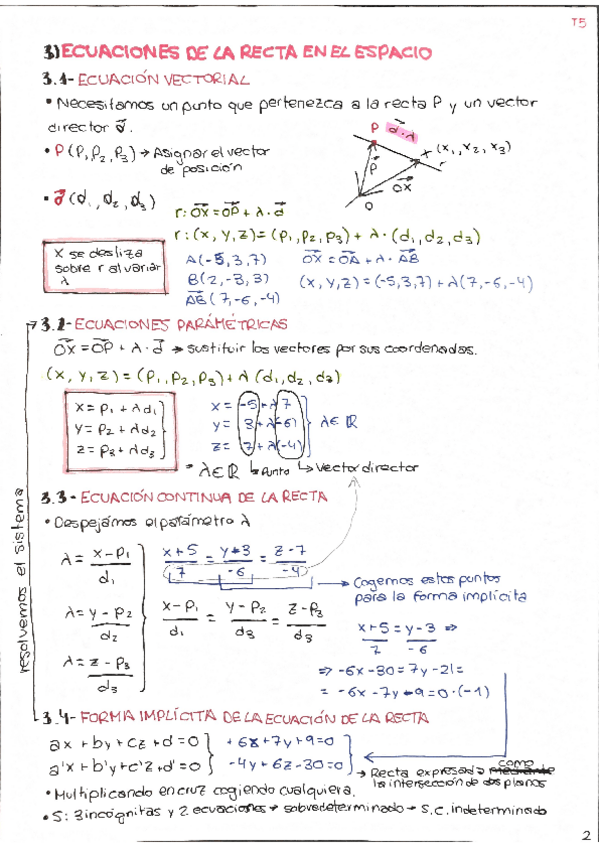 T5
3) ECUACIONES DE LA RECTA EN EL ESPACIO
3.1- ECUACIÓN VECTORIAL
• Necesitamos un punto que pertenezca a la recta P y un vector
director d⃗.
P d⃗·λ
x (x₁, x₂, x₃)
r
P⃗
OX⃗
O
• P(P₁, P₂, P₃) → Asignar el vector
de posición
• d⃗ (d₁, d₂, d₃)
r: OX⃗ = OP⃗ + λ·d⃗
r: (x, y, z) = (p₁, p₂, p₃) + λ·(d₁, d₂, d₃)
X se desliza
sobre r al variar
λ
A(-5,3,7) OX⃗ = OA⃗ + λ·AB⃗
B(2,-3,3) (x,y,z) = (-5,3,7) + λ(7,-6,-4)
AB⃗(7,-6,-4)
3.2- ECUACIONES PARÁMÉTRICAS
OX⃗ = OP⃗ + λ·d⃗ → sustituir los vectores por sus coordenadas.
(x, y, z) = (P₁, P₂, P₃) + λ (d₁, d₂, d₃)
x = p₁ + λd₁
y = p₂ + λd₂
z = p₃ + λd₃
x = -5 + λ7
y = 3 + λ(-6) } λ∈ℝ
z = 7 + λ(-4)
• λ∈ℝ ↳ Punto ↳ Vector director
3.3- ECUACIÓN CONTINUA DE LA RECTA
• Despejamos el parámetro λ
λ = (x - p₁)/d₁
λ = (y - p₂)/d₂
λ = (z - p₃)/d₃
(x+5)/7 = (y+3)/-6 = (z-7)/-4
(x-p₁)/d₁ = (y-p₂)/d₃ = (z-p₃)/d₃
→ Cogemos estos puntos
para la forma implícita
(x+5)/7 = (y-3)/-6 ⇒
⇒ -6x-30 = 7y-21 =
= -6x-7y+9=0·(-1)
resolvemos el sistema
3.4- FORMA IMPLÍCITA DE LA ECUACIÓN DE LA RECTA
ax + by + cz + d = 0 } +6x+7y+9=0
a'x + b'y + c'z + d' = 0 } -4y+6z-30=0
→ Recta expresada mediante como
la intersección de dos planos
• Multiplicando en cruz cogiendo cualquiera.
• S: 3 incógnitas y 2 ecuaciones → sobredeterminado → S.C. indeterminado
2